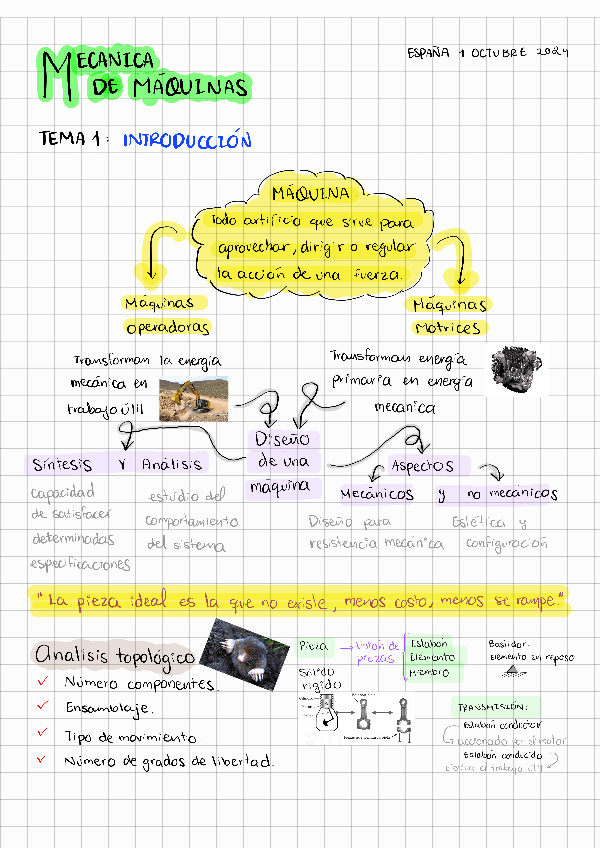 MECANICA
DE MÁQUINAS
ESPAÑA 1 OCTUBRE 2024
TEMA 1: INTRODUCCIÓN
MÁQUINA
Todo artificio que sirve para
aprovechar, dirigir o regular
la acción de una fuerza.
Máquinas
operadoras
Máquinas
Motrices
Transforman la energía
mecánica en
trabajo útil
Transforman energía
primaria en energía
mecanica
Diseño
de una
máquina
Síntesis Y Análisis
capacidad
de satisfacer
determinadas
especificaciones
estudio del
comportamiento
del sistema
Aspectos
Mecánicos y no mecánicos
Diseño para
resistencia mecánica
Estética y
configuración
"La pieza ideal es la que no existe, menos costo, menos se rompe."
Analisis topológico
✓ Número componentes.
✓ Ensamblaje.
✓ Tipo de movimiento
✓ Número de grados de libertad.
Pieza → Unión de
piezas
Eslabón
Elemento
Miembro
Sólido
rígido
Bastidor:
Elemento en reposo
TRANSMISIÓN:
Eslabón conductor
accionado por el motor
Eslabón conducido
el trabajo útil